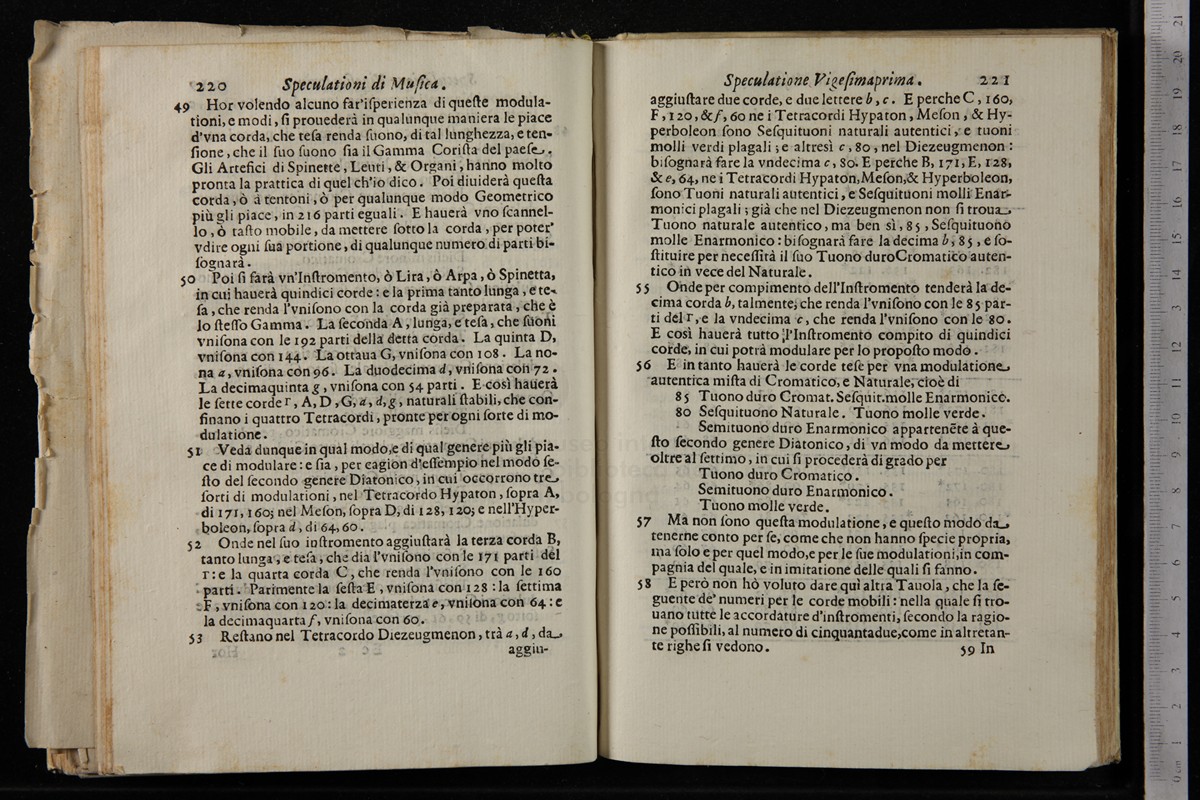 220 Speculationi di Muſica.
49 Hor volendo alcuno far'iſperienza di queſte modula-
tioni, e modi, ſi prouederà in qualunque maniera le piace
d'vna corda, che teſa renda ſuono, di tal lunghezza, e ten-
ſione, che il ſuo ſuono ſia il Gamma Coriſta del paeſe.
Gli Artefici di Spinette, Leuti, & Organi, hanno molto
pronta la prattica di quel ch'io dico. Poi diuiderà queſta
corda, ò à tentoni, ò per qualunque modo Geometrico
più gli piace, in 216 parti eguali. E hauerà vno ſcannel-
lo, ò taſto mobile, da mettere ſotto la corda, per poter'
vdire ogni ſua portione, di qualunque numero di parti bi-
ſognarà.
50 Poi ſi farà vn'Inſtromento, ò Lira, ò Arpa, ò Spinetta,
in cui hauerà quindici corde: e la prima tanto lunga, e te-
ſa, che renda l'vniſono con la corda già preparata, che è
lo ſteſſo Gamma. La ſeconda A, lunga, e teſa, che ſuoni
vniſona con le 192 parti della detta corda. La quinta D,
vniſona con 144. La ottaua G, vniſona con 108. La no-
na a, vniſona con 96. La duodecima d, vniſona con 72.
La decimaquinta g, vniſona con 54 parti. E così hauerà
le ſette corde Γ, A, D, G, a, d, g, naturali ſtabili, che con-
finano i quattro Tetracordi, pronte per ogni ſorte di mo-
dulatione.
51 Veda dunque in qual modo, e di qual genere più gli pia-
ce di modulare: e ſia, per cagion d'eſſempio nel modo ſe-
ſto del ſecondo genere Diatonico, in cui occorrono tre
ſorti di modulationi, nel Tetracordo Hypaton, ſopra A,
di 171, 160; nel Meſon, ſopra D, di 128, 120; e nell'Hyper-
boleon, ſopra d, di 64, 60.
52 Onde nel ſuo inſtromento aggiuſtarà la terza corda B,
tanto lunga, e teſa, che dia l'vniſono con le 171 parti del
Γ: e la quarta corda C, che renda l'vniſono con le 160
parti. Parimente la ſeſta E, vniſona con 128: la ſettima
F, vniſona con 120: la decimaterza e, vniſona con 64: e
la decimaquarta f, vniſona con 60.
53 Reſtano nel Tetracordo Diezeugmenon, trà a, d, da
aggiu-
Speculatione Vigeſimaprima. 221
aggiuſtare due corde, e due lettere b, c. E perche C, 160,
F, 120, & f, 60 ne i Tetracordi Hypaton, Meſon, & Hy-
perboleon ſono Seſquituoni naturali autentici, e tuoni
molli verdi plagali; e altresì c, 80, nel Diezeugmenon:
biſognarà fare la vndecima c, 80. E perche B, 171, E, 128,
& e, 64, ne i Tetracordi Hypaton, Meſon, & Hyperboleon,
ſono Tuoni naturali autentici, e Seſquituoni molli Enar-
monici plagali; già che nel Diezeugmenon non ſi troua
Tuono naturale autentico, ma ben sì, 85, Seſquituono
molle Enarmonico: biſognarà fare la decima b, 85, e ſo-
ſtituire per neceſſità il ſuo Tuono duro Cromatico auten-
tico in vece del Naturale.
55 Onde per compimento dell'Inſtromento tenderà la de-
cima corda b, talmente, che renda l'vniſono con le 85 par-
ti del Γ, e la vndecima c, che renda l'vniſono con le 80.
E così hauerà tutto l'Inſtromento compito di quindici
corde, in cui potrà modulare per lo propoſto modo.
56 E in tanto hauerà le corde teſe per vna modulatione
autentica miſta di Cromatico, e Naturale, cioè di
85 Tuono duro Cromat. Seſquit. molle Enarmonico.
80 Seſquituono Naturale. Tuono molle verde.
Semituono duro Enarmonico appartenẽte à que-
ſto ſecondo genere Diatonico, di vn modo da mettere
oltre al ſettimo, in cui ſi procederà di grado per
Tuono duro Cromatico.
Semituono duro Enarmonico.
Tuono molle verde.
57 Ma non ſono queſta modulatione, e queſto modo da
tenerne conto per ſe, come che non hanno ſpecie propria,
ma ſolo e per quel modo, e per le ſue modulationi, in com-
pagnia del quale, e in imitatione delle quali ſi fanno.
58 E però non hò voluto dare quì altra Tauola, che la ſe-
guente de' numeri per le corde mobili: nella quale ſi tro-
uano tutte le accordature d'inſtromenti, ſecondo la ragio-
ne poſſibili, al numero di cinquantadue, come in altretan-
te righe ſi vedono. 59 In